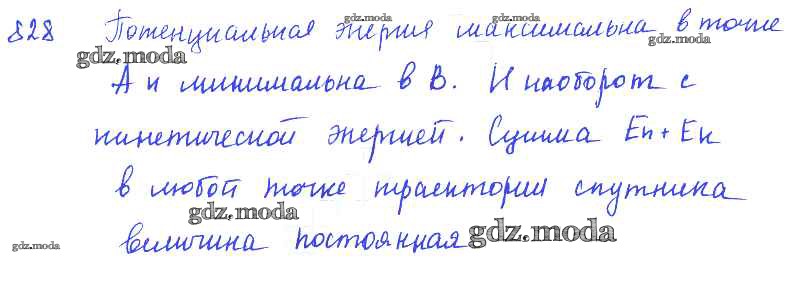 828 Потенциальная энергия максимальна в точке
А и минимальна в В. И наоборот с
кинетической энергией. Сумма Еп + Ек
в любой точке траектории спутника
величина постоянная
gdz.moda
gdz.moda
gdz.moda
gdz.moda
gdz.moda
gdz.moda
gdz.moda
gdz.moda